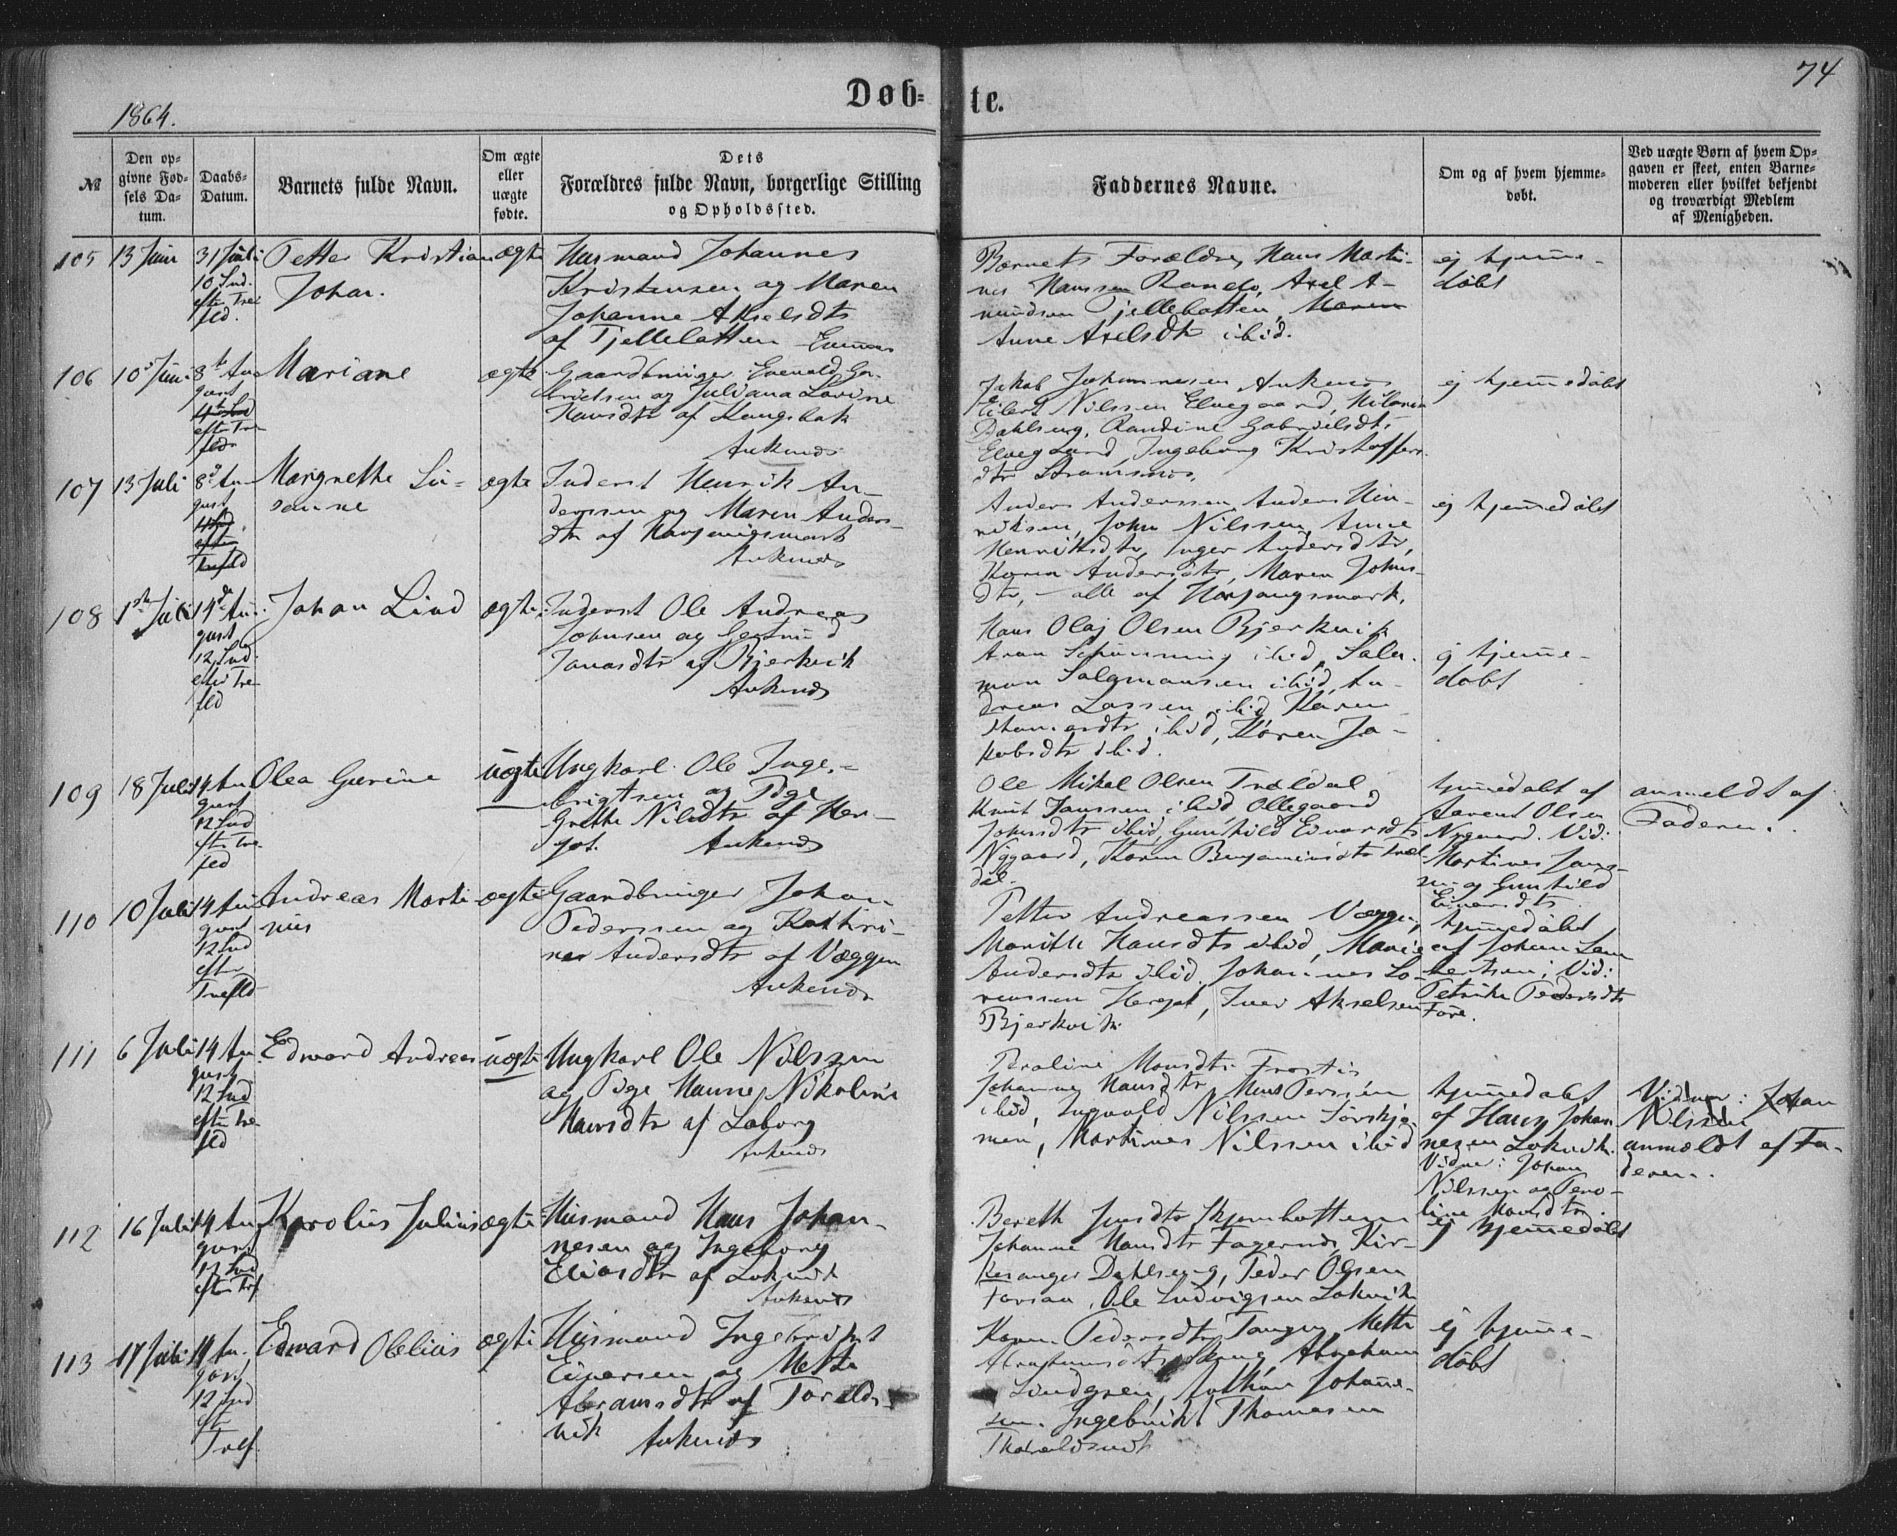 1864.
Døb-
te.
74
№
Den op-
givne Fød-
sels Da-
tum.
Daabs-
Datum.
Barnets fulde Navn.
Om ægte
eller
uægte
fødte.
Dets
Forældres fulde Navn, borgerlige Stilling
og Opholdssted.
Faddernes Navne.
Om og af hvem hjemme-
døbt.
Ved uægte Børn af hvem Op-
gaven er skeet, enten Barne-
moderen eller hvilket bekjendt
og troværdigt Medlem
af Menigheden.
105
13 Juni
31 Juli
10 Snd.
efter Tre
fld.
Petter Kristian
Johan.
ægte
Husmand Johannes
Kristensen og Maren
Johanne Akselsdtr
af Fjellebotten
Barnets Forældre, Hans Marti-
nus Hanssen Axel A-
mundsen Fjellebotten, Maren
Anne Axelsdtr ibid.
ej hjemme-
døbt
106
10 Juni
8de Au-
gust
efter Tre
fldr
Mariane
ægte
Gaardbruger Ga-
brielsen og Juliana Lovine
Hansdtr af
Ankenes
Jakob Johannesen Ankenes
Eilert Nilssen Elvegaard,
Dahlseng, Randine Gabrielsdtr
Elvegaard Ingeborg Kristoffers-
dtr Strømsnes.
ej hjemmedøbt
107
13 Juli
8de Au-
gust
efter
Trefld
Margrethe Su-
sanne
ægte
Inderst Henrik An-
derssen og Maren Anders-
dtr af Harjangsmark
Ankenes
Anders Anderssen, Anders Hen-
riksen, John Nilssen, Anne
Henriksdtr, Inger Andersdtr,
Karen Andersdtr, Maren Johns-
dtr, – alle af Harjangsmark.
ej hjemmedøbt
108
1ste Juli
14de Au-
gust
12 Snd.
efter Tre-
fld
Johan Lind
ægte
Inderst Ole Andreas
Johnsen og Gertrud
Jonasdtr af Bjerkvik
Ankenes
Hans Olaj Olsen Bjerkvik
Aron Schønning ibid, Salo-
mon Salomonsen ibid, An-
dreas Lassen ibid Karen
ibid, Karen Ja-
kobsdtr ibid.
ej hjemme-
døbt
109
18 Juli
14 Au
gust
12 Snd
efter Tre
fld
Olea Gurine
uægte
Ungkarl Ole Inge-
brigtsen og Pige
Grethe Nilsdtr af Her-
jot. Ankenes
Ole Mikal Olsen Trældal
Knut Janssen ibid Ollegaard
Johnsdtr ibid, Gunhild Einarsdtr
Nygaard, Karen Benjaminsdtr Træl-
dal.
hjemmedøbt af
Aarent Olsen
Nygaard. Vid:
Martines
og Gunhild
Einarsdtr
anmeldt af
Faderen.
110
10 Juli
14 Au
gust
12 Snd
efter
Trefld
Andreas Marti-
nus
ægte
Gaardbruger Johan
Pederssen og Kathri-
ne Andersdtr af Væggen
Ankenes
Petter Andreassen Væggen,
Marith Hansdtr ibid, Marie
Andersdtr ibid. Johannes Lo-
renssen Herjot, Iver Akselsen
Bjerkvik
hjemmedøbt
af Johan Lam
bertsen; Vid:
Petrikke Pedersdtr
111
6 Juli
14 Au
gust
12 Snd
efter Tre
fld
Edward Andreas
uægte
Ungkarl Ole Nilssen
og Pige Hanne Nikoline
Hansdtr af Laberg
Ankenes
Peroline Monsdtr
Johanna Hansdtr Mons Perssen
ibid, Ingvald Nilssen
Martines Nilssen ibid
hjemmedøbt
af Hans Johan
nesen Lakvik.
Vidner: Johan
Nilssen og Pero-
line Monsdtr.
Vidner: Johan
Nilssen
anmeldt af Fa-
deren.
112
16 Juli
14 Au
gust
12 Snd
efter Tref
Karolius Julius
ægte
Husmand Hans Johan-
nesen og Ingeborg
Eliasdtr af Lakvik
Ankenes
Bereth
Johanne Hansdtr Fagernes,
Dahlseng, Peder Olsen
Ole Ludvigsen Lakvik
ej hjemmedøbt
113
17 Juli
14 Au.
gust
12 Snd
eft
Tref.
Edward Obelius
ægte
Husmand Ingebrikt
Einersen og Mette
Abramsdtr af Toralds-
vik Ankenes
Karen Pedersdtr Mette
Abrahamsdtr Abraham
Lindgren, Johan Johanne-
sen. Ingebrikt Thomesen
Thoraldsvik
ej hjemme-
døbt